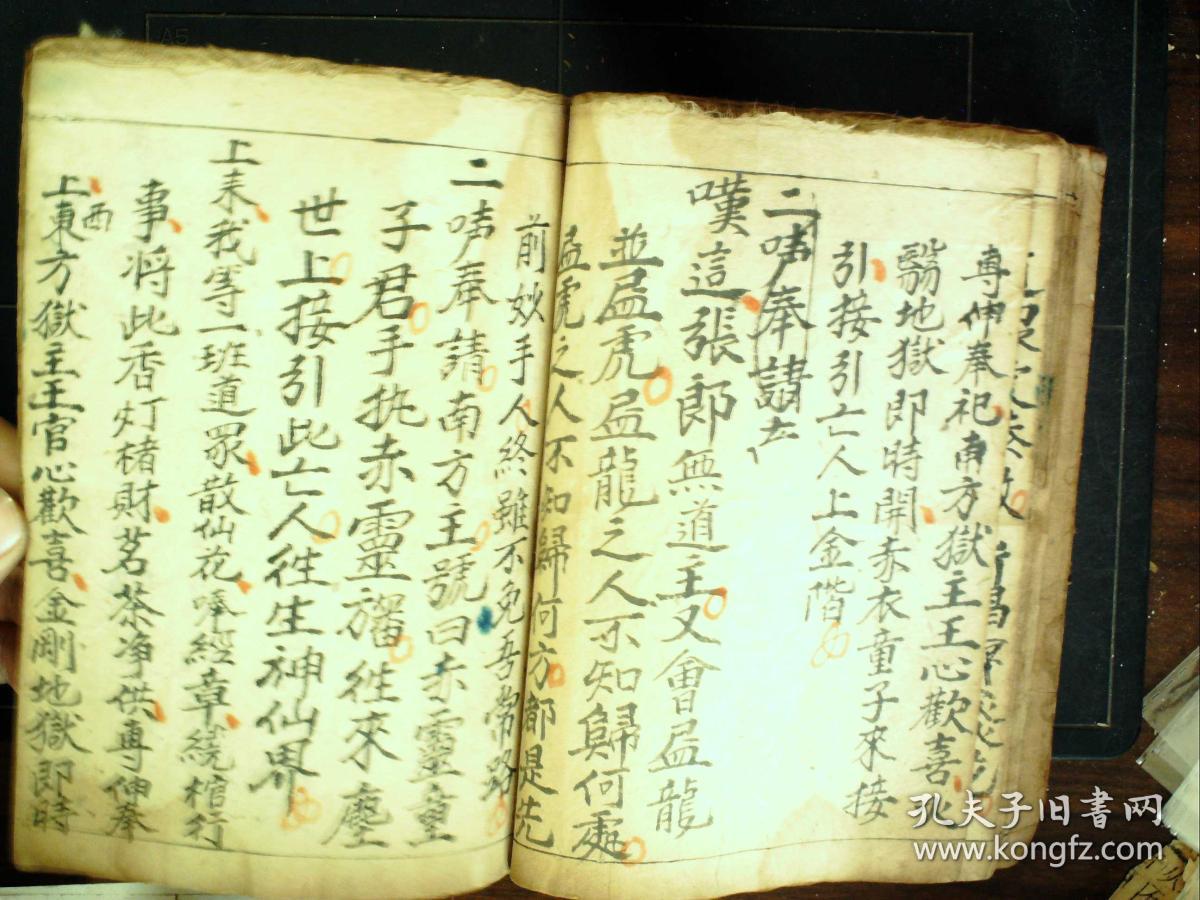 專伸奉祀南方獄主王心歡喜火
翳地獄即時開赤衣童子來接
引接引亡人上金階
二唪奉請去
嘆這張郎無道主又會孟龍
並孟虎孟龍之人不知歸何處
孟虎之人不知歸何方都是先
前妙手人終雖不免吾常路
二唪奉請南方主號曰赤靈童
子君手执赤靈旛徃來塵
世上接引此亡人徃生神仙界
上来我等一班道眾散仙花唪經章繞棺行
事将此香灯楮財茗茶净供專伸奉
上東方獄主王官心歡喜金剛地獄即時
西
A5
孔夫子旧书网
www.kongfz.com